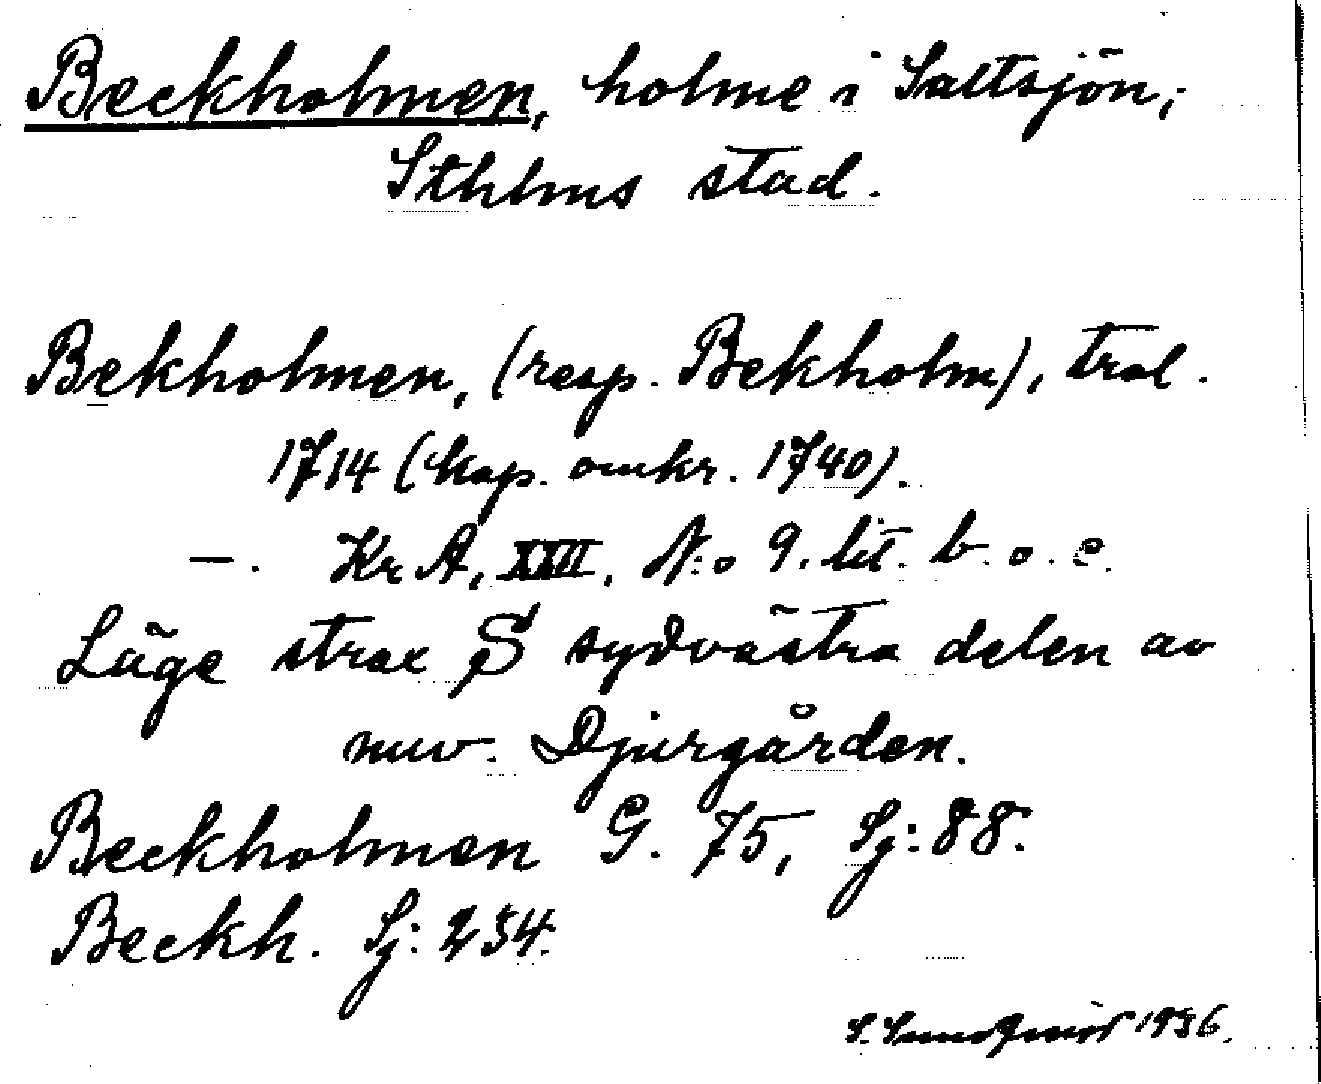 Beckholmen, holme i Saltsjön,
Sthlms stad.
Bekholmen, (resp. Bekholm), trol.
1714 (kop. omkr. 1740).
—. Kr A, XXII, N:o 9. lit. b. o. c.
Läge strax S sydvästra delen av
nuv. Djurgården.
Beckholmen G. 75, Sj: 88.
Beckh. Sj: 254.
S. Sundqvist 1936.